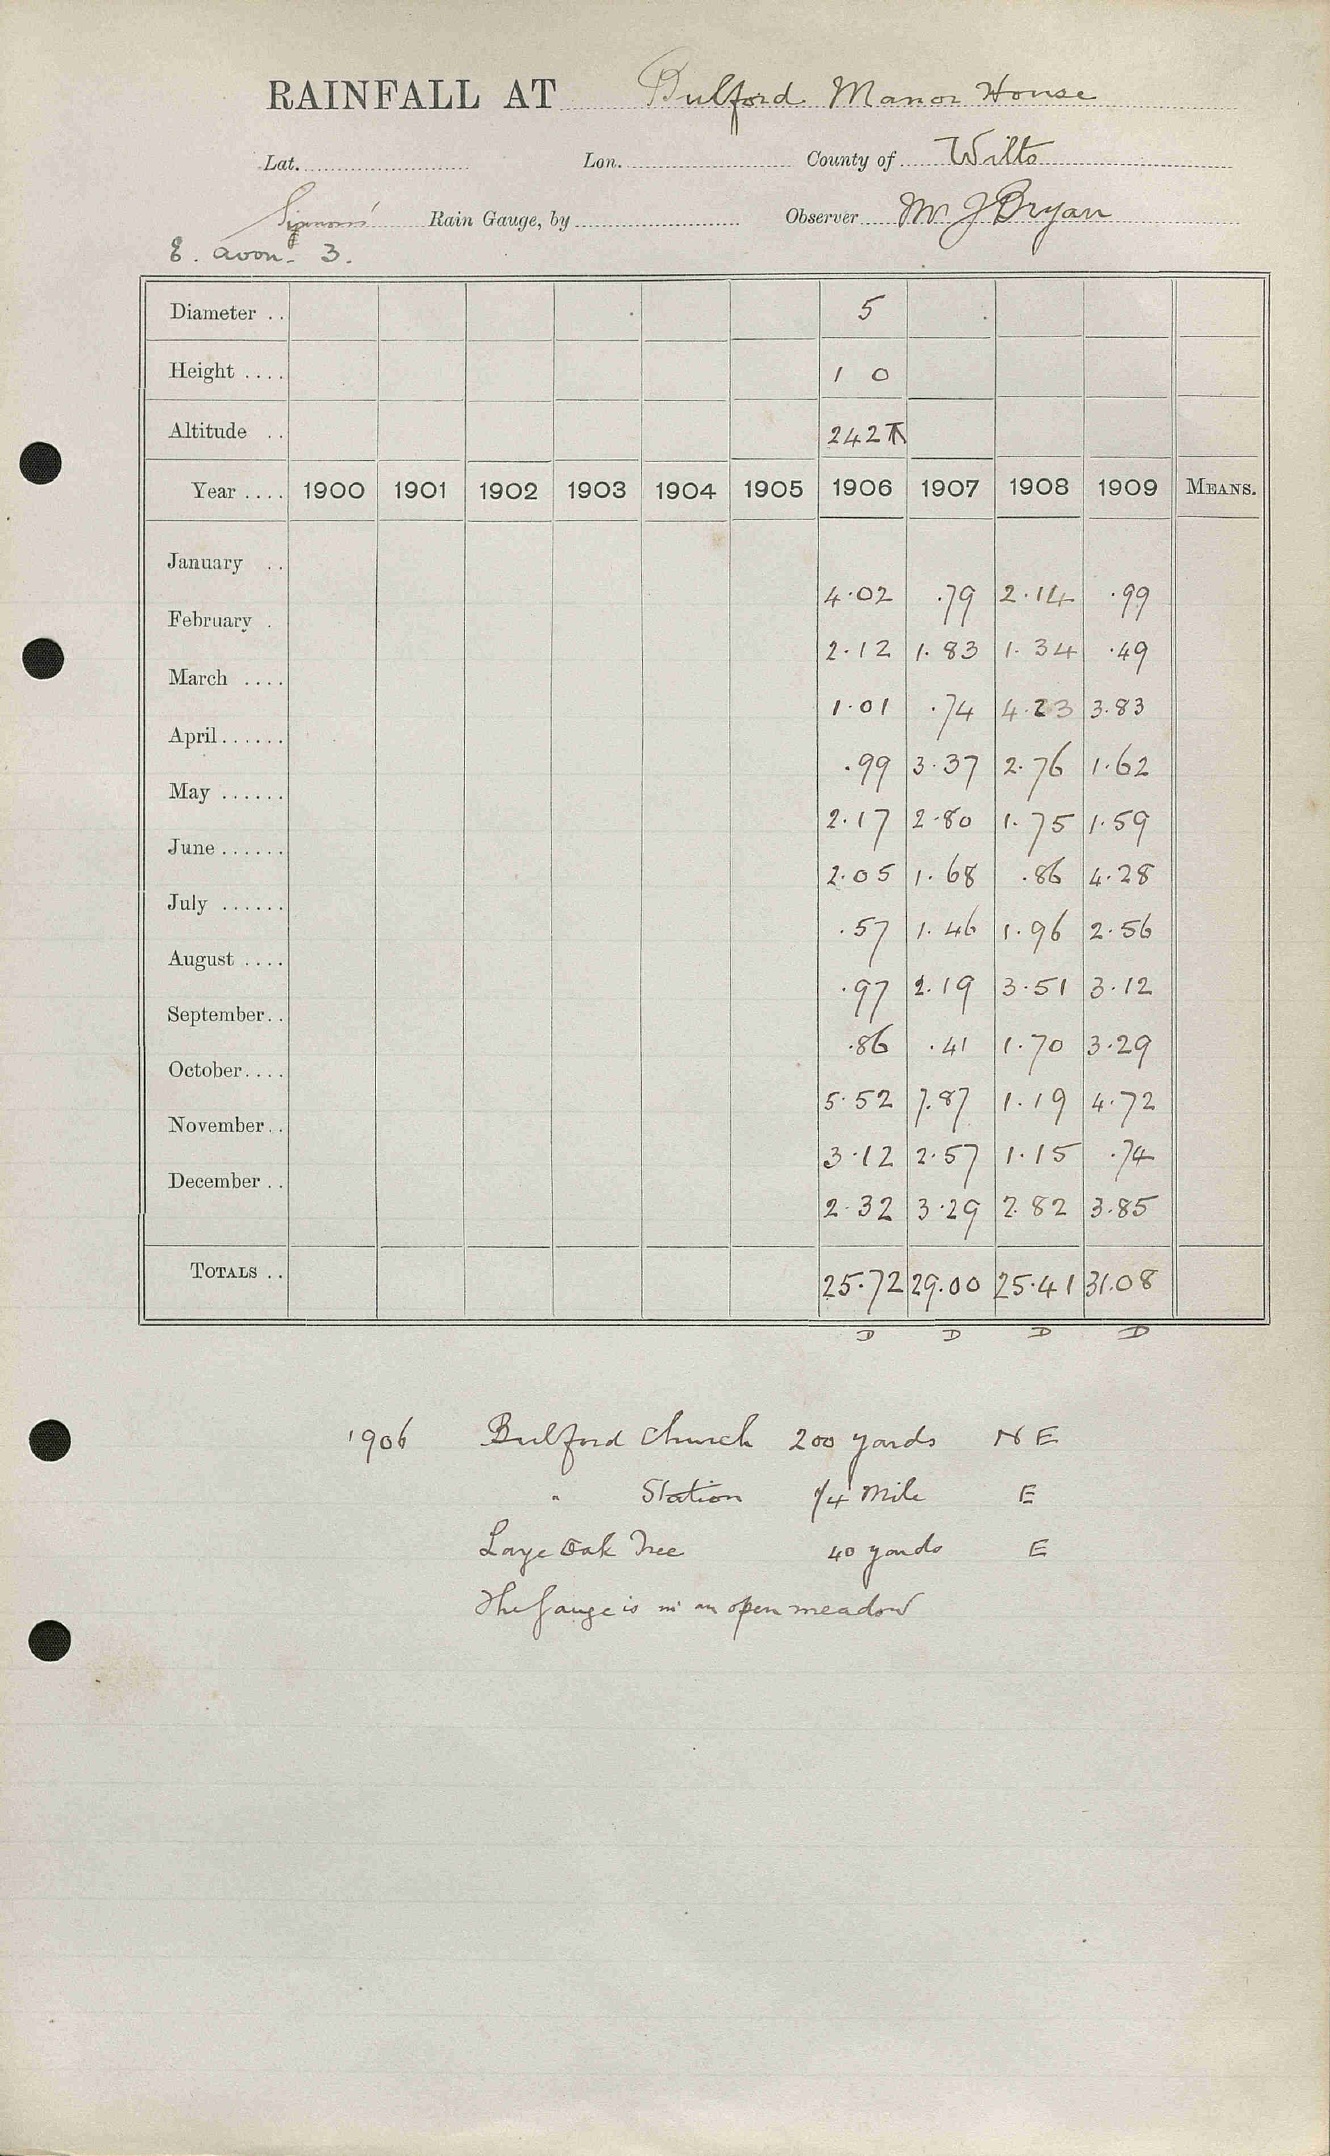 RAINFALL AT Bulford Manor House
Lat. Lon. County of Wilts
Symons' Rain Gauge, by Observer Mr J Bryan
E. Avon. 3.
Diameter .. 5
Height .... 1 0
Altitude .. 242
Year .... 1900 1901 1902 1903 1904 1905 1906 1907 1908 1909 MEANS.
January .. 4.02 .79 2.14 .99
February . 2.12 1.83 1.34 .49
March .... 1.01 .74 4.23 3.83
April...... .99 3.37 2.76 1.62
May ...... 2.17 2.80 1.75 1.59
June ...... 2.05 1.68 .86 4.28
July ...... .57 1.46 1.96 2.56
August .... .97 2.19 3.51 3.12
September.. .86 .41 1.70 3.29
October.... 5.52 7.87 1.19 4.72
November.. 3.12 2.57 1.15 .74
December .. 2.32 3.29 2.82 3.85
TOTALS .. 25.72 29.00 25.41 31.08
D D D D
1906 Bulford Church 200 yards N E
" Station 1/4 Mile E
Large Oak Tree 40 yards E
The Gauge is in an open meadow